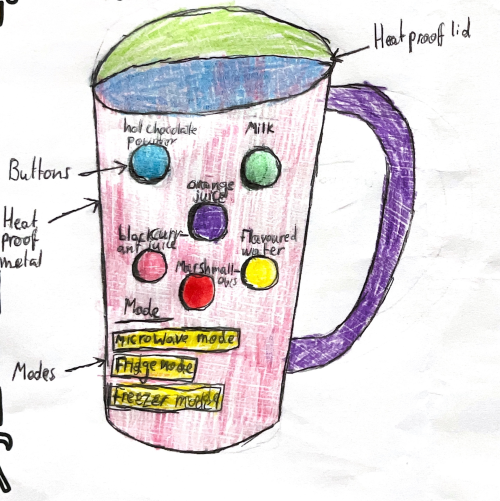 Heatproof lid
hot chocolate
powder
Milk
Buttons
orange
juice
Heat
proof
metal
blackcurr-
ant juice
Flavoured
water
Marshmall-
ows
Mode
Microwave mode
Modes
Fridge mode
Freezer